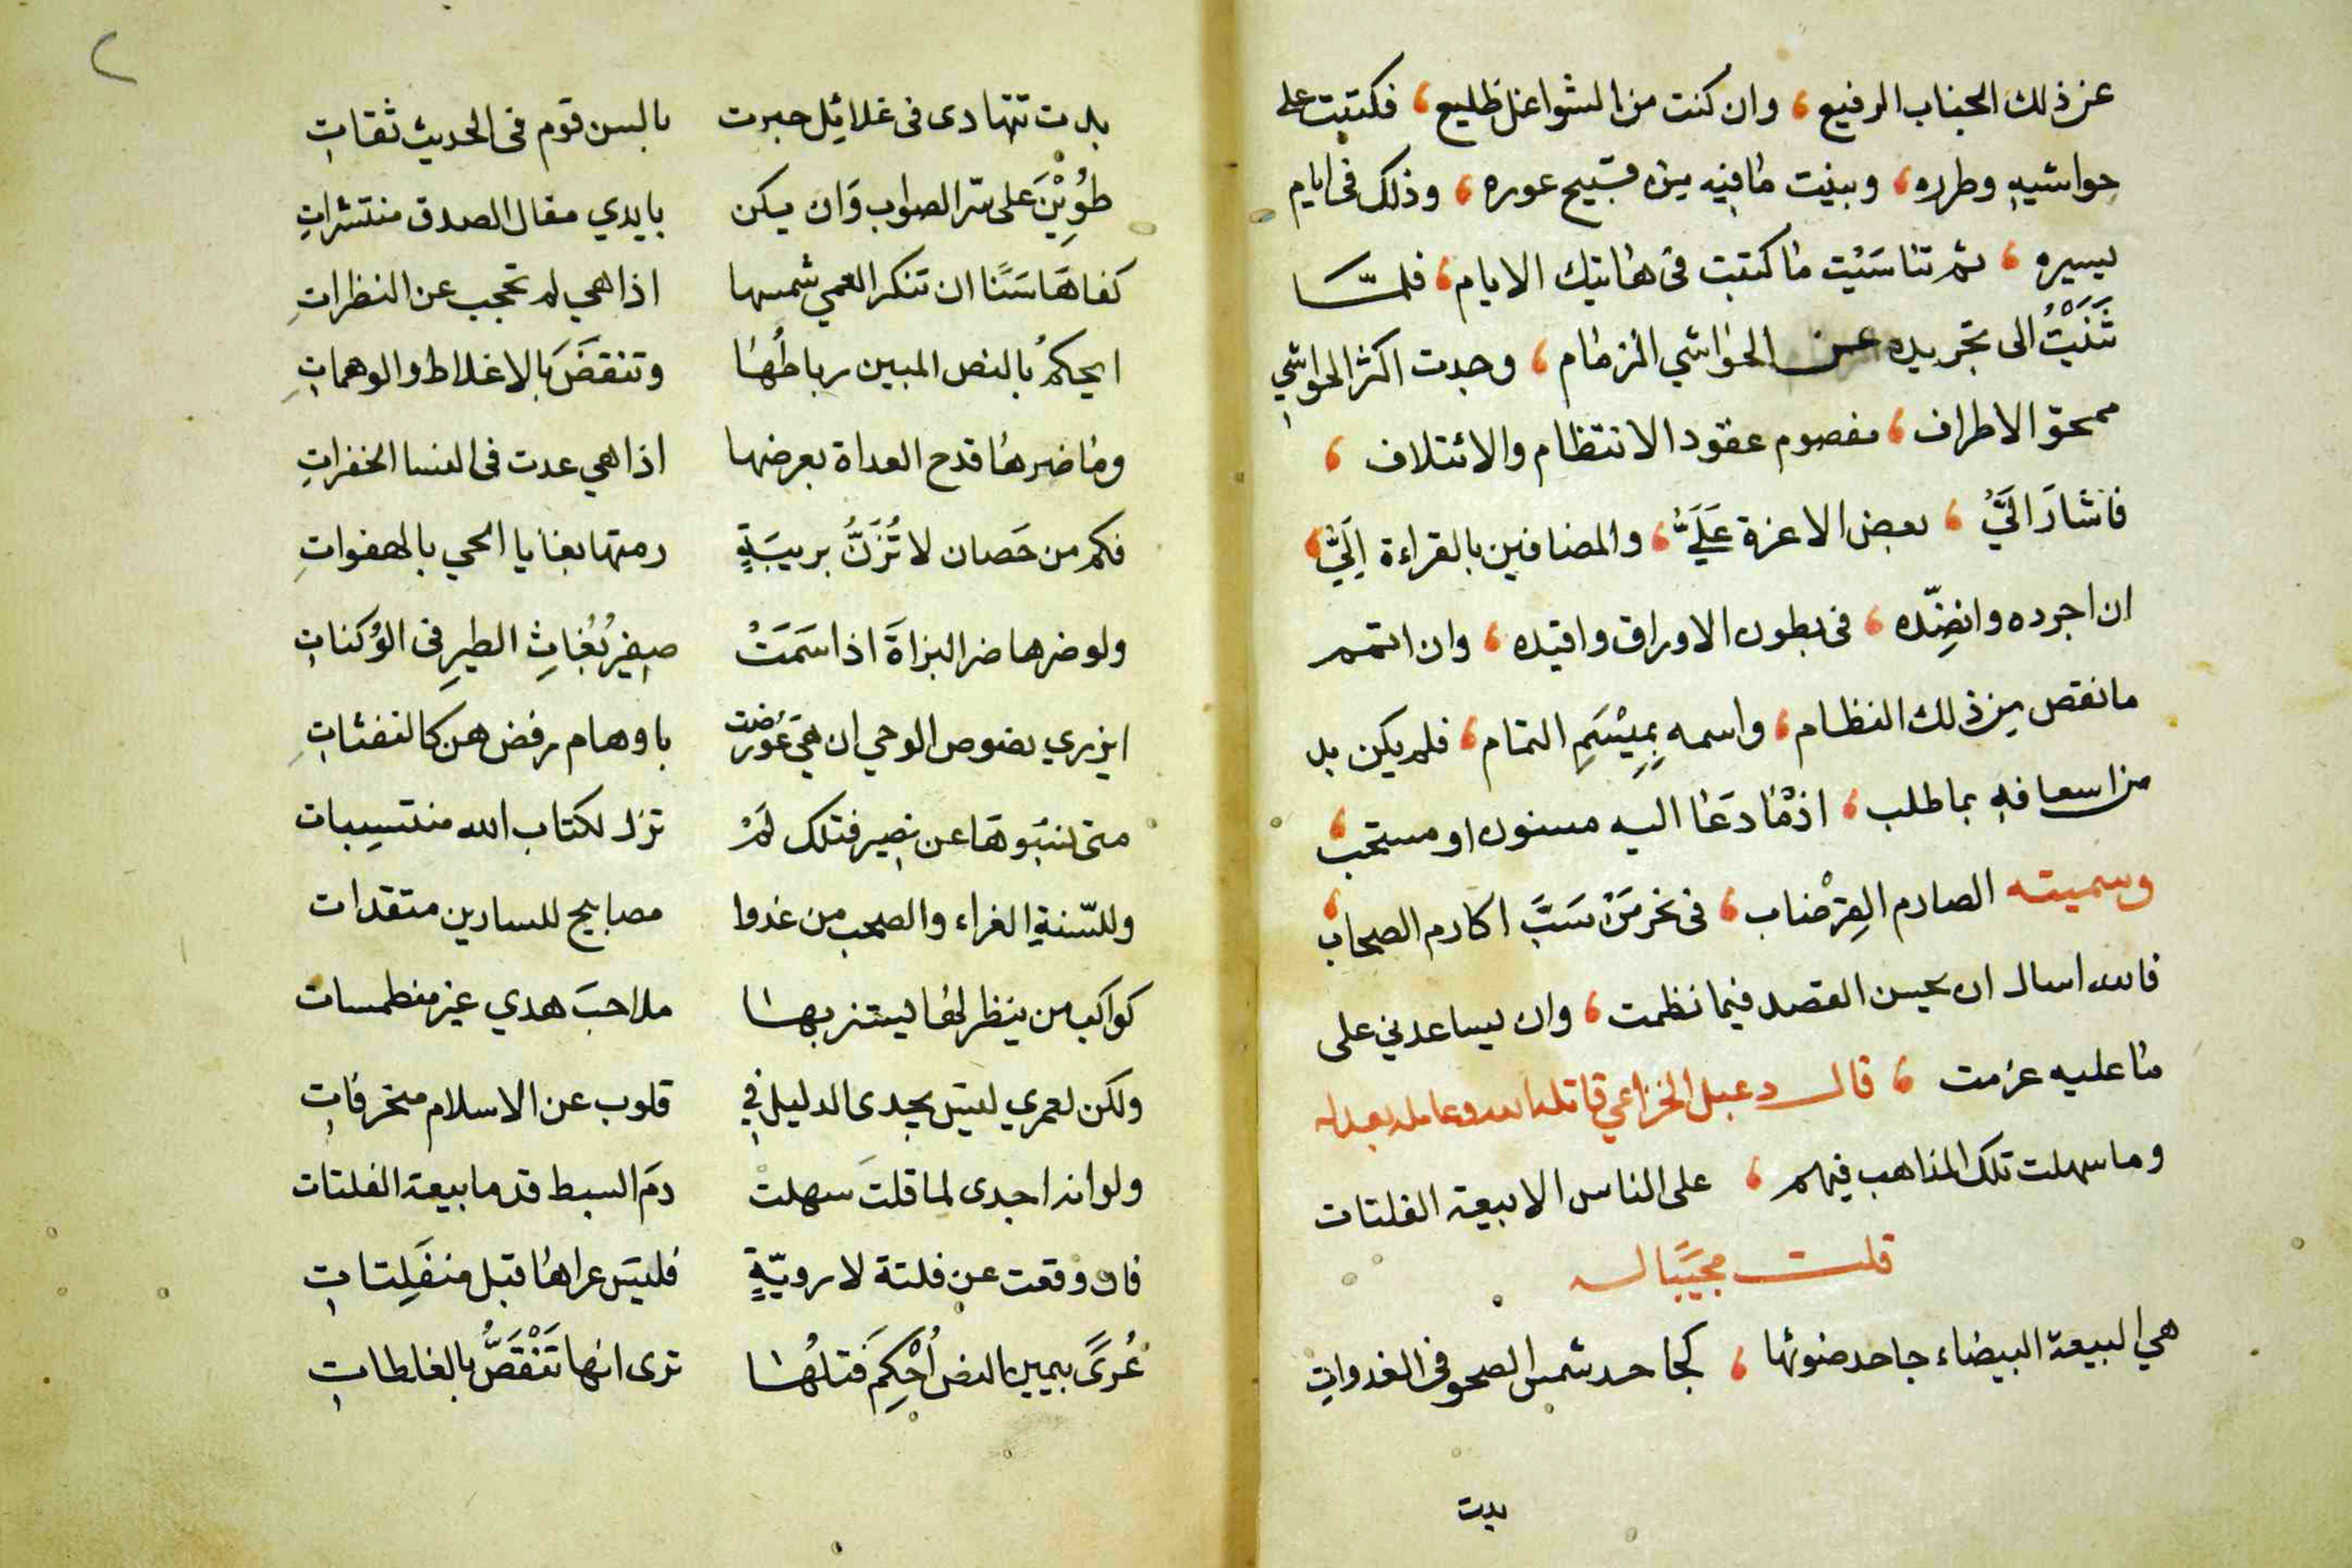 عن ذلك الجناب الرفيع، وان كنت من الشواغل ظليع، فكتبت على
حواشيه وطرره، وبينت ما فيه من قبيح عوره، وذلك فى ايام
يسيره، ثم تناسَيْت ما كتبت فى هاتيك الايام، فلمَّا
ثَنَيْتُ الى تجريده عن الحواشي الزمام، وجدت اكثر الحواشي
ممحق الاطراف، مفصوم عقود الانتظام والائتلاف،
فاشَارَ الَيَّ، بعض الاعزة عَلَيَّ، والمضافين بالقراءة اِلَيَّ،
ان اجرده وانضِّده، فى بطون الاوراق واقيده، وان اتمم
ما نقص من ذلك النظام، واسمه بِمِيْسَمِ التمام، فلم يكن بد
من اسعافه بما طلب، اذ ما دَعَا اليه مسنون او مستحب،
وسميته الصارم العِرْضاب، فى نحر مَنْ سَبَّ اكارم الصحاب،
فالله اسال ان يحسن القصد فيما نظمت، وان يساعدني على
ما عليه عزمت، قال دعبل الخزاعي قاتله الله وعامله بعدله
وما سهلت تلك المذاهب فيهم، على الناس الا بيعة الفلتات
قلت مجيبًا له
هي البيعة البيضاء جاحد ضوئها، كجاحد شمس الصحو فى الغدواتِ
بدت
٢
بدت تتهادى فى غلائل حبرت بالسن قوم فى الحديث ثقاتِ
طُوِيْنَ على سّر الصواب وَان يكن بايدي مقال الصدق منتشراتِ
كفاهَا سَنًا ان تنكر العمي شمسها اذا هي لم تحجب عن النظراتِ
ايحكمُ بالنص المبين رباطُها وتنقضَ بالاغلاط والوهماتِ
وما ضرها قدح العداة بعرضها اذا هي عدت فى النسا الخفراتِ
فكم من حَصان لا تُزَنُّ بريبَةٍ رمتها بغايا الحي بالهفواتِ
ولو ضرها ضر البزاةَ اذا سَمَتْ صفير بُغاثِ الطيرِ فى الوُكناتِ
ايزري بنصوص الوحي ان هيَ عُورضت باوهام رفض هن كالنفثاتِ
متى ننبوهَا عن نصير فتلك لَمْ تزل لكتاب الله منتسِبات
وللسّنةِ الغراء والصحب من غدوا مصابيح للسارين متقدات
كواكب من ينظر لها يستنر بها ملاحبَ هدي غير منطمسات
ولكن لعمري ليسَ يجدى الدليل في قلوب عن الاسلام منحرفاتِ
ولو انه اجدى لما قلتَ سهلت دمَ السبط قدما بيعة الفلتات
فان وقعت عن فلتة لا رويّةٍ فليسَ عراها قبل منفَلِتاتِ
عُرىً بيمين النص اُحْكِمَ فَتلُها ترى انها تَنْقَصُّ بالغلطاتِ